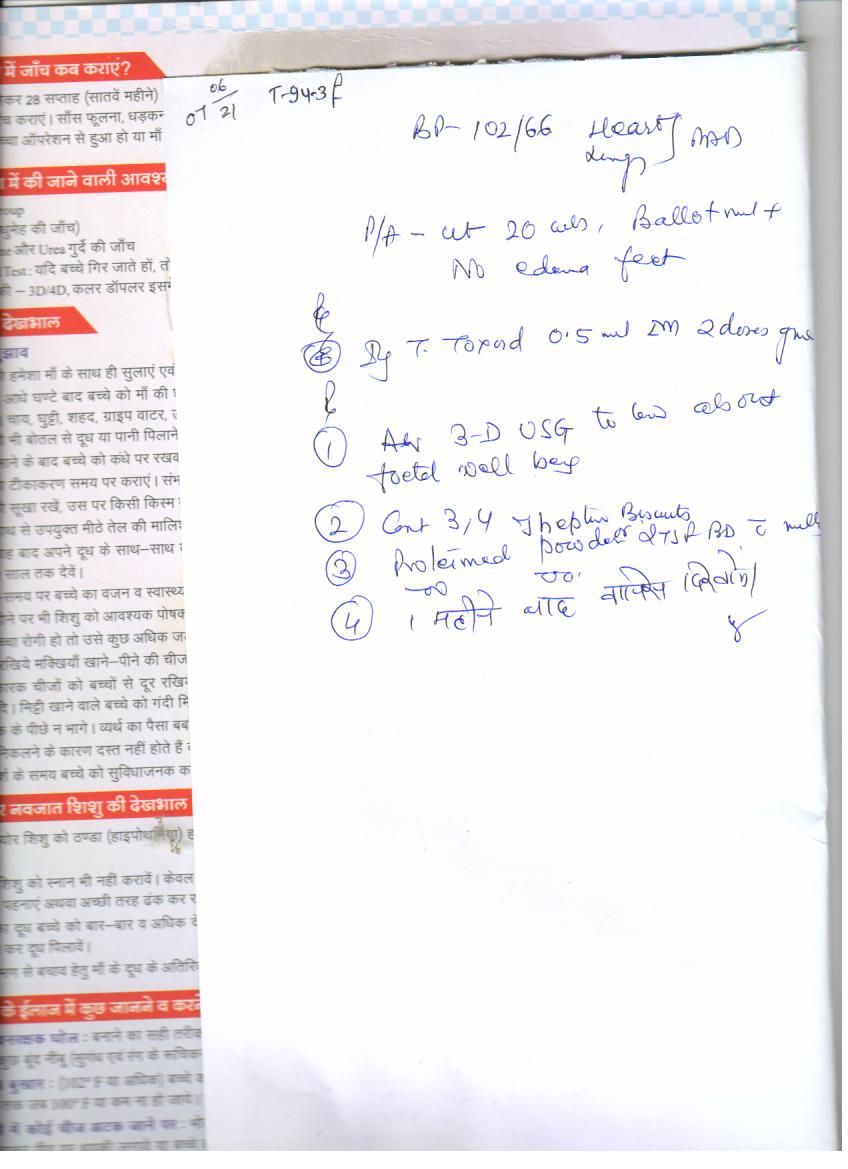 में जाँच कब कराएं?
कर 28 सप्ताह (सातवें महीने)
च कराएं। साँस फूलना, धड़कन
च्चा ऑपरेशन से हुआ हो या माँ
में की जाने वाली आवश्य
roup
धुनेह की जाँच)
ne और Urea गुर्दे की जाँच
Test: यदि बच्चे गिर जाते हों, तो
की – 3D/4D, कलर डॉपलर इसमें
देखभाल
झाव
हमेशा माँ के साथ ही सुलाएं एवं
आधे घण्टे बाद बच्चे को माँ की
चाय, घुट्टी, शहद, ग्राइप वाटर,
भी बोतल से दूध या पानी पिलाने
ाने के बाद बच्चे को कंधे पर रखव
टीकाकरण समय पर कराएं। संभ
सूखा रखें, उस पर किसी किस्म
ाथ से उपयुक्त मीठे तेल की मालिश
ह बाद अपने दूध के साथ–साथ
साल तक देवें।
समय पर बच्चे का वजन व स्वास्थ्य
ने पर भी शिशु को आवश्यक पोषक
च्चा रोगी हो तो उसे कुछ अधिक ज
रखिये मक्खियाँ खाने–पीने की चीज
ारक चीजों को बच्चों से दूर रखि
दे। मिट्टी खाने वाले बच्चे को गंदी मि
के पीछे न भागे। व्यर्थ का पैसा बब
निकलने के कारण दस्त नहीं होते हैं
र्श के समय बच्चे को सुविधाजनक क
र नवजात शिशु की देखभाल
योर शिशु को ठण्डा (हाइपोथर्मिया)
शिशु को स्नान भी नहीं करावें। केवल
पहनाएं अथवा अच्छी तरह ढंक कर र
ा दूध बच्चे को बार–बार व अधिक दे
कर दूध पिलावें।
मण से बचाव हेतु माँ के दूध के अतिरि
के ईलाज में कुछ जानने व करने
नरक्षक घोल : बनाने का सही तरीक
कुछ बूंद नींबू (सुगंध एवं रंग के
बुखार : (102° F या अधिक) बच्चे
तक जब 100° F या कम ना हो जाये।
में कोई चीज अटक जाने पर :
07 06/21 T-94-3f
BP- 102/66 Heart Lungs } NAD
P/A - ut 20 wks, Ballotment +
No edema feet
Inj T. Toxoid 0.5 ml IM 2 doses
① Adv 3-D USG to know about
foetal well being
② Cont 3,4 Threptin Biscuits
③ Proteimed powder 2TSF BD c milk
④ 1 महीने बाद वापिस दिखावें